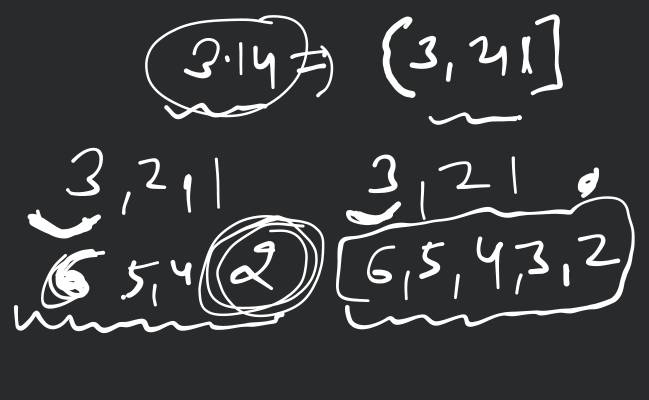 3.14 ⇒ (3, 21]
3, 2, 1 3, 2 1
6 5, 4 2 6, 5, 4, 3, 2